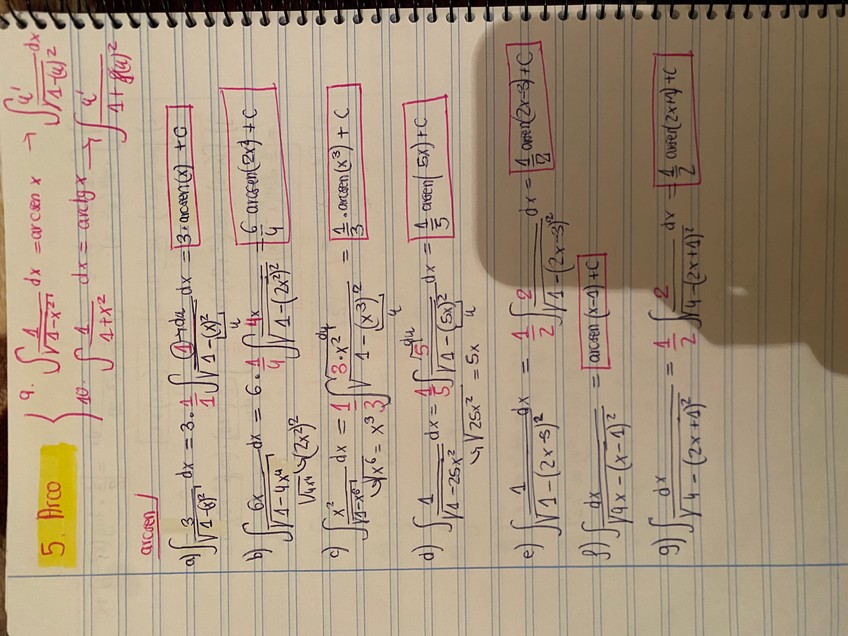 5. Arco
9. ∫ 1/√(1-x²) dx = arcsen x → ∫ u'/√(1-(u)²) dx
10. ∫ 1/(1+x²) dx = arctg x → ∫ u'/(1+(u)²)
arcsen
a) ∫ 3/√(1-(x)²) dx = 3·1/1 ∫ 1→du/√(1-(x)²) dx = 3·arcsen(x) + C
u
b) ∫ 6x/√(1-4x⁴) dx = 6·1/4 ∫ 4x/√(1-(2x²)²) = 6/4 arcsen(2x²) + C
√4x⁴ → (2x²)²
c) ∫ x²/√(1-x⁶) dx = 1/3 ∫ 3·x²/√(1-(x³)²) = 1/3·arcsen(x³) + C
du
√x⁶ = x³
u
d) ∫ 1/√(1-25x²) dx = 1/5 ∫ 5/√(1-(5x)²) dx = 1/5 arcsen(5x) + C
du
u
→ √25x² = 5x
e) ∫ 1/√(1-(2x-3)²) dx = 1/2 ∫ 2/√(1-(2x-3)²) dx = 1/2 arcsen(2x-3) + C
f) ∫ dx/√(4x-(x-1)²) = arcsen(x-1) + C
g) ∫ dx/√(4-(2x+1)²) = 1/2 ∫ 2/√(4-(2x+1)²) dx = 1/2 arcsen(2x+1) + C